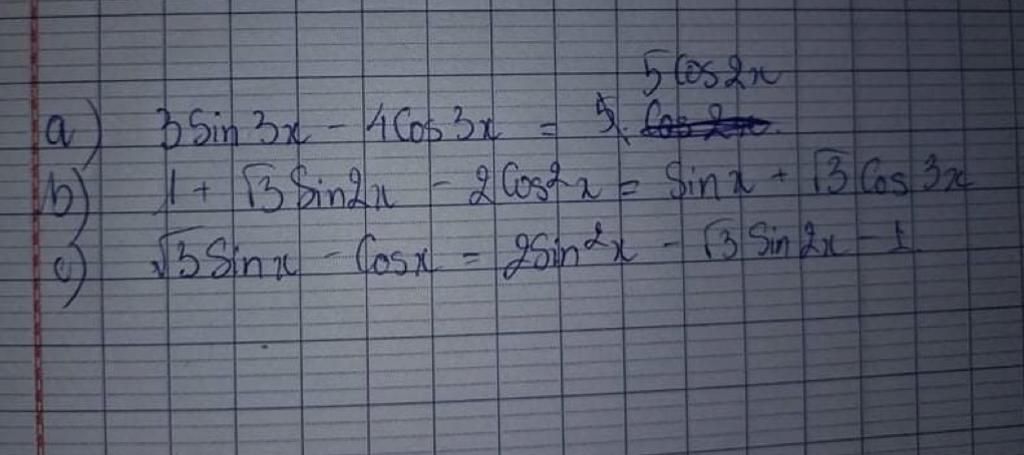 5 Cos 2x
a) 3 Sin 3x - 4 Cos 3x = 5.
b) 1 + √3 Sin 2x - 2 Cos²x = Sin x + √3 Cos 3x
c) √3 Sin x - Cos x = 2 Sin²x - √3 Sin 2x - 1